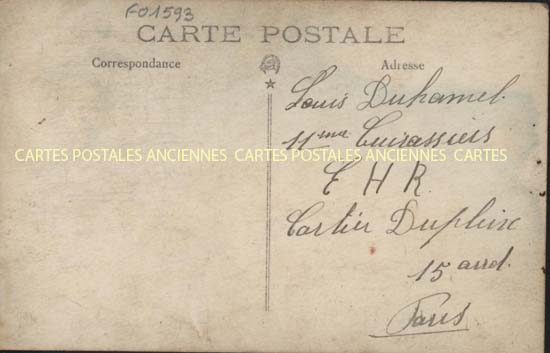 F01593
CARTE POSTALE
Correspondance
Adresse
Louis Duhamel
11me Cuirassiers
CARTES POSTALES ANCIENNES CARTES POSTALES ANCIENNES CARTES
E H R
Cartier Dupleix
15 arrd.
Paris